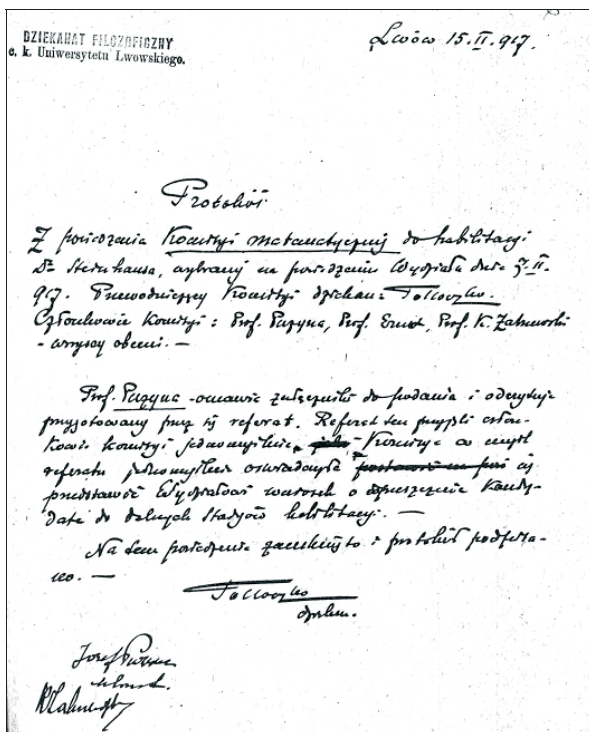 DZIEKANAT FILOZOFICZNY
c. k. Uniwersytetu Lwowskiego.
Lwów 15.II.917.
Protokół
Z posiedzenia Komisyi matematycznej do habilitacyi
Dra Steinhausa, wybranej na posiedzeniu Wydziału dnia 7.II.
917. Przewodniczący Komisyi dziekan: Tołłoczko.
Członkowie Komisyi: Prof. Puzyna, Prof. Ernst, Prof. K. Zakrzewski
- wszyscy obecni. -
Prof. Puzyna - omawia załączniki do podania i odczytuje
przygotowany przez się referat. Referat ten przyjęli człon-
kowie komisyi jednomyślnie, Komisya w myśl
referatu jednomyślnie oświadczyła się
przedstawić Wydziałowi wniosek o dopuszczenie Kandy-
data do dalszych stadyów habilitacyi. -
Na tem posiedzenie zamknięto i protokół podpisa-
no. -
Tołłoczko
dziekan.
Józef Puzyna
K Zakrzewski